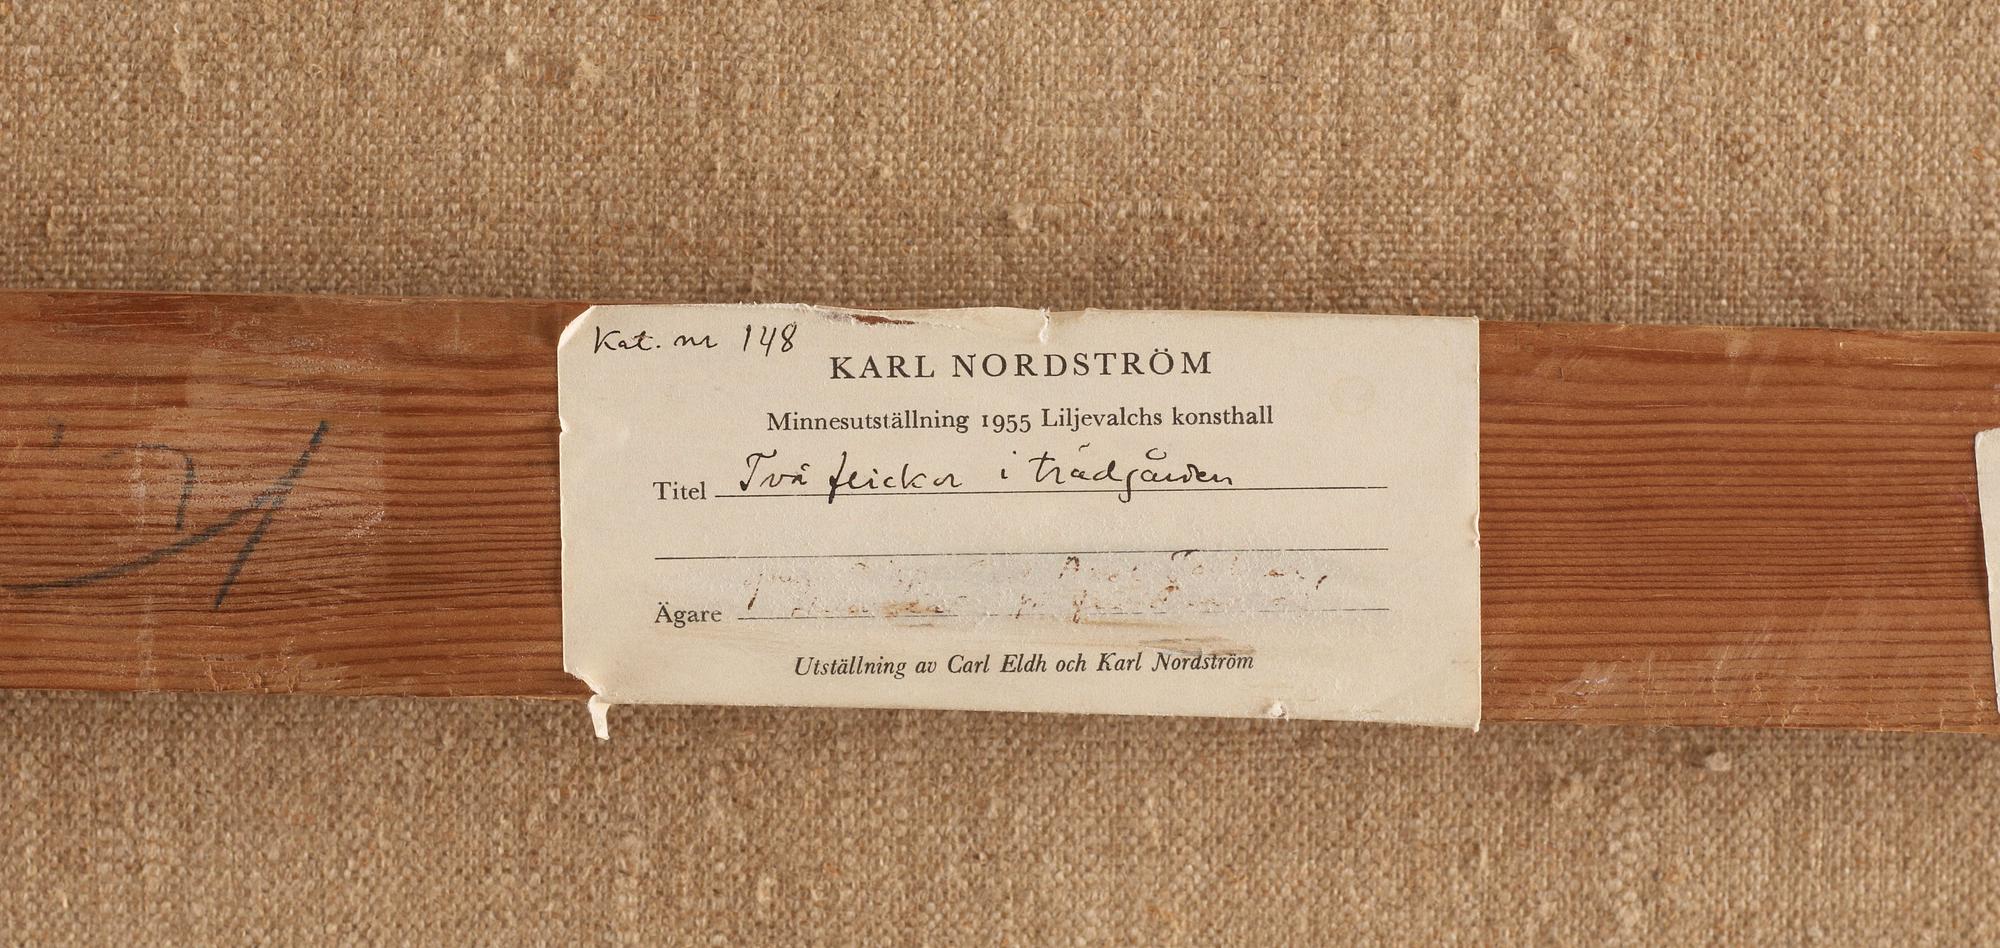 Kat. nr 148
KARL NORDSTRÖM
Minnesutställning 1955 Liljevalchs konsthall
Titel Två flickor i trädgården
Ägare
Utställning av Carl Eldh och Karl Nordström